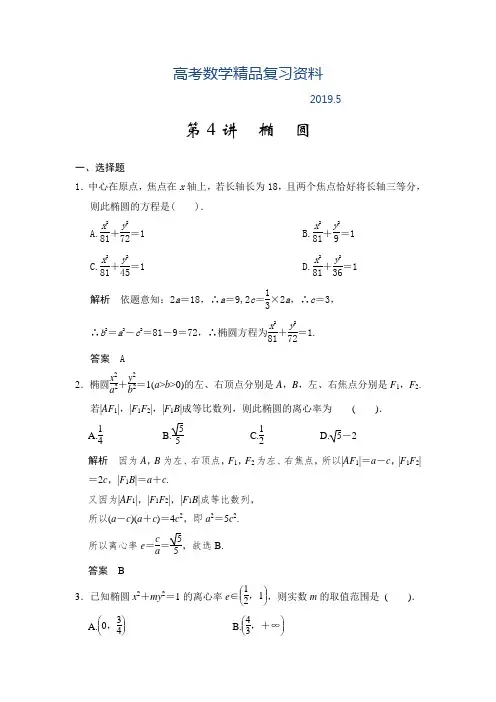 高考数学精品复习资料
2019.5
第4讲 椭 圆
一、选择题
1．中心在原点，焦点在x轴上，若长轴长为18，且两个焦点恰好将长轴三等分，
则此椭圆的方程是( )．
A.x²/81＋y²/72＝1 B.x²/81＋y²/9＝1
C.x²/81＋y²/45＝1 D.x²/81＋y²/36＝1
解析 依题意知：2a＝18，∴a＝9,2c＝1/3×2a，∴c＝3，
∴b²＝a²－c²＝81－9＝72，∴椭圆方程为x²/81＋y²/72＝1.
答案 A
2．椭圆x²/a²＋y²/b²＝1(a>b>0)的左、右顶点分别是A，B，左、右焦点分别是F₁，F₂.
若|AF₁|，|F₁F₂|，|F₁B|成等比数列，则此椭圆的离心率为 ( )．
A.1/4 B.√5/5 C.1/2 D.√5－2
解析 因为A，B为左、右顶点，F₁，F₂为左、右焦点，所以|AF₁|＝a－c，|F₁F₂|
＝2c，|F₁B|＝a＋c.
又因为|AF₁|，|F₁F₂|，|F₁B|成等比数列，
所以(a－c)(a＋c)＝4c²，即a²＝5c².
所以离心率e＝c/a＝√5/5，故选B.
答案 B
3．已知椭圆x²＋my²＝1的离心率e∈(1/2，1)，则实数m的取值范围是 ( )．
A.(0，3/4) B.(4/3，＋∞)